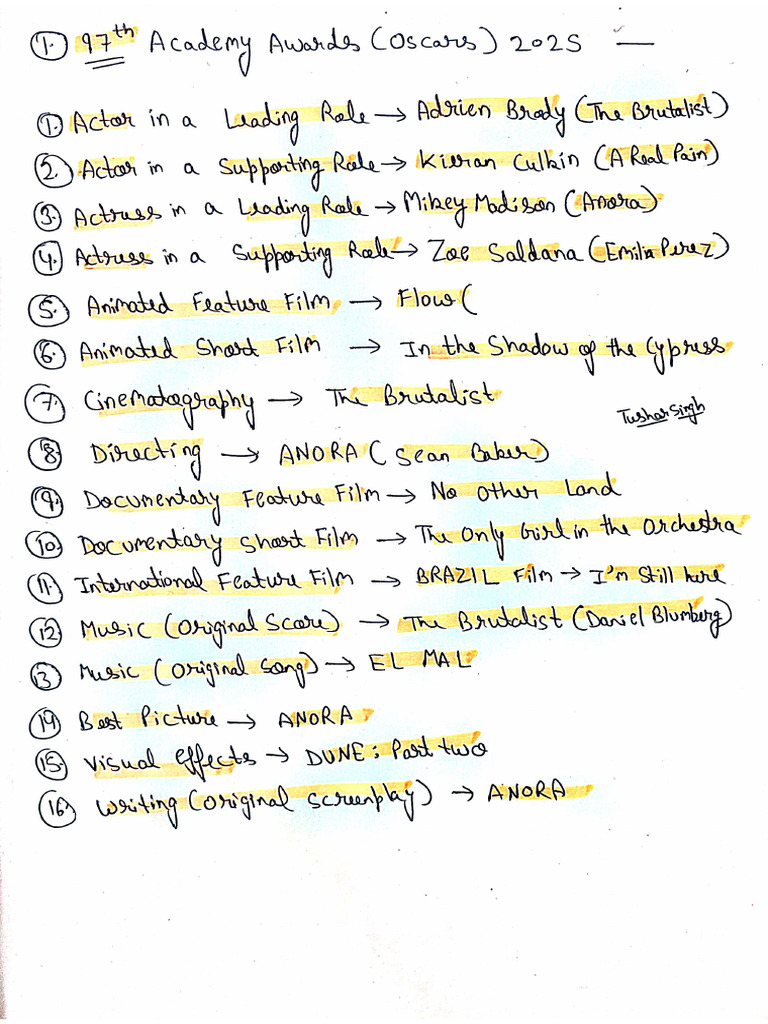 1. 97th Academy Awards (Oscars) 2025 —
1. Actor in a Leading Role → Adrien Brody (The Brutalist)
2. Actor in a Supporting Role → Kieran Culkin (A Real Pain)
3. Actress in a Leading Role → Mikey Madison (Anora)
4. Actress in a Supporting Role → Zoe Saldana (Emilia Perez)
5. Animated Feature Film → Flow (
6. Animated Short Film → In the Shadow of the Cypress
7. Cinematography → The Brutalist
Tushar Singh
8. Directing → ANORA (Sean Baker)
9. Documentary Feature Film → No Other Land
10. Documentary Short Film → The Only Girl in the Orchestra
11. International Feature Film → BRAZIL Film → I'm Still here
12. Music (Original Score) → The Brutalist (Daniel Blumberg)
13. Music (Original Song) → EL MAL
14. Best Picture → ANORA
15. Visual Effects → DUNE: Part two
16. Writing (Original Screenplay) → ANORA